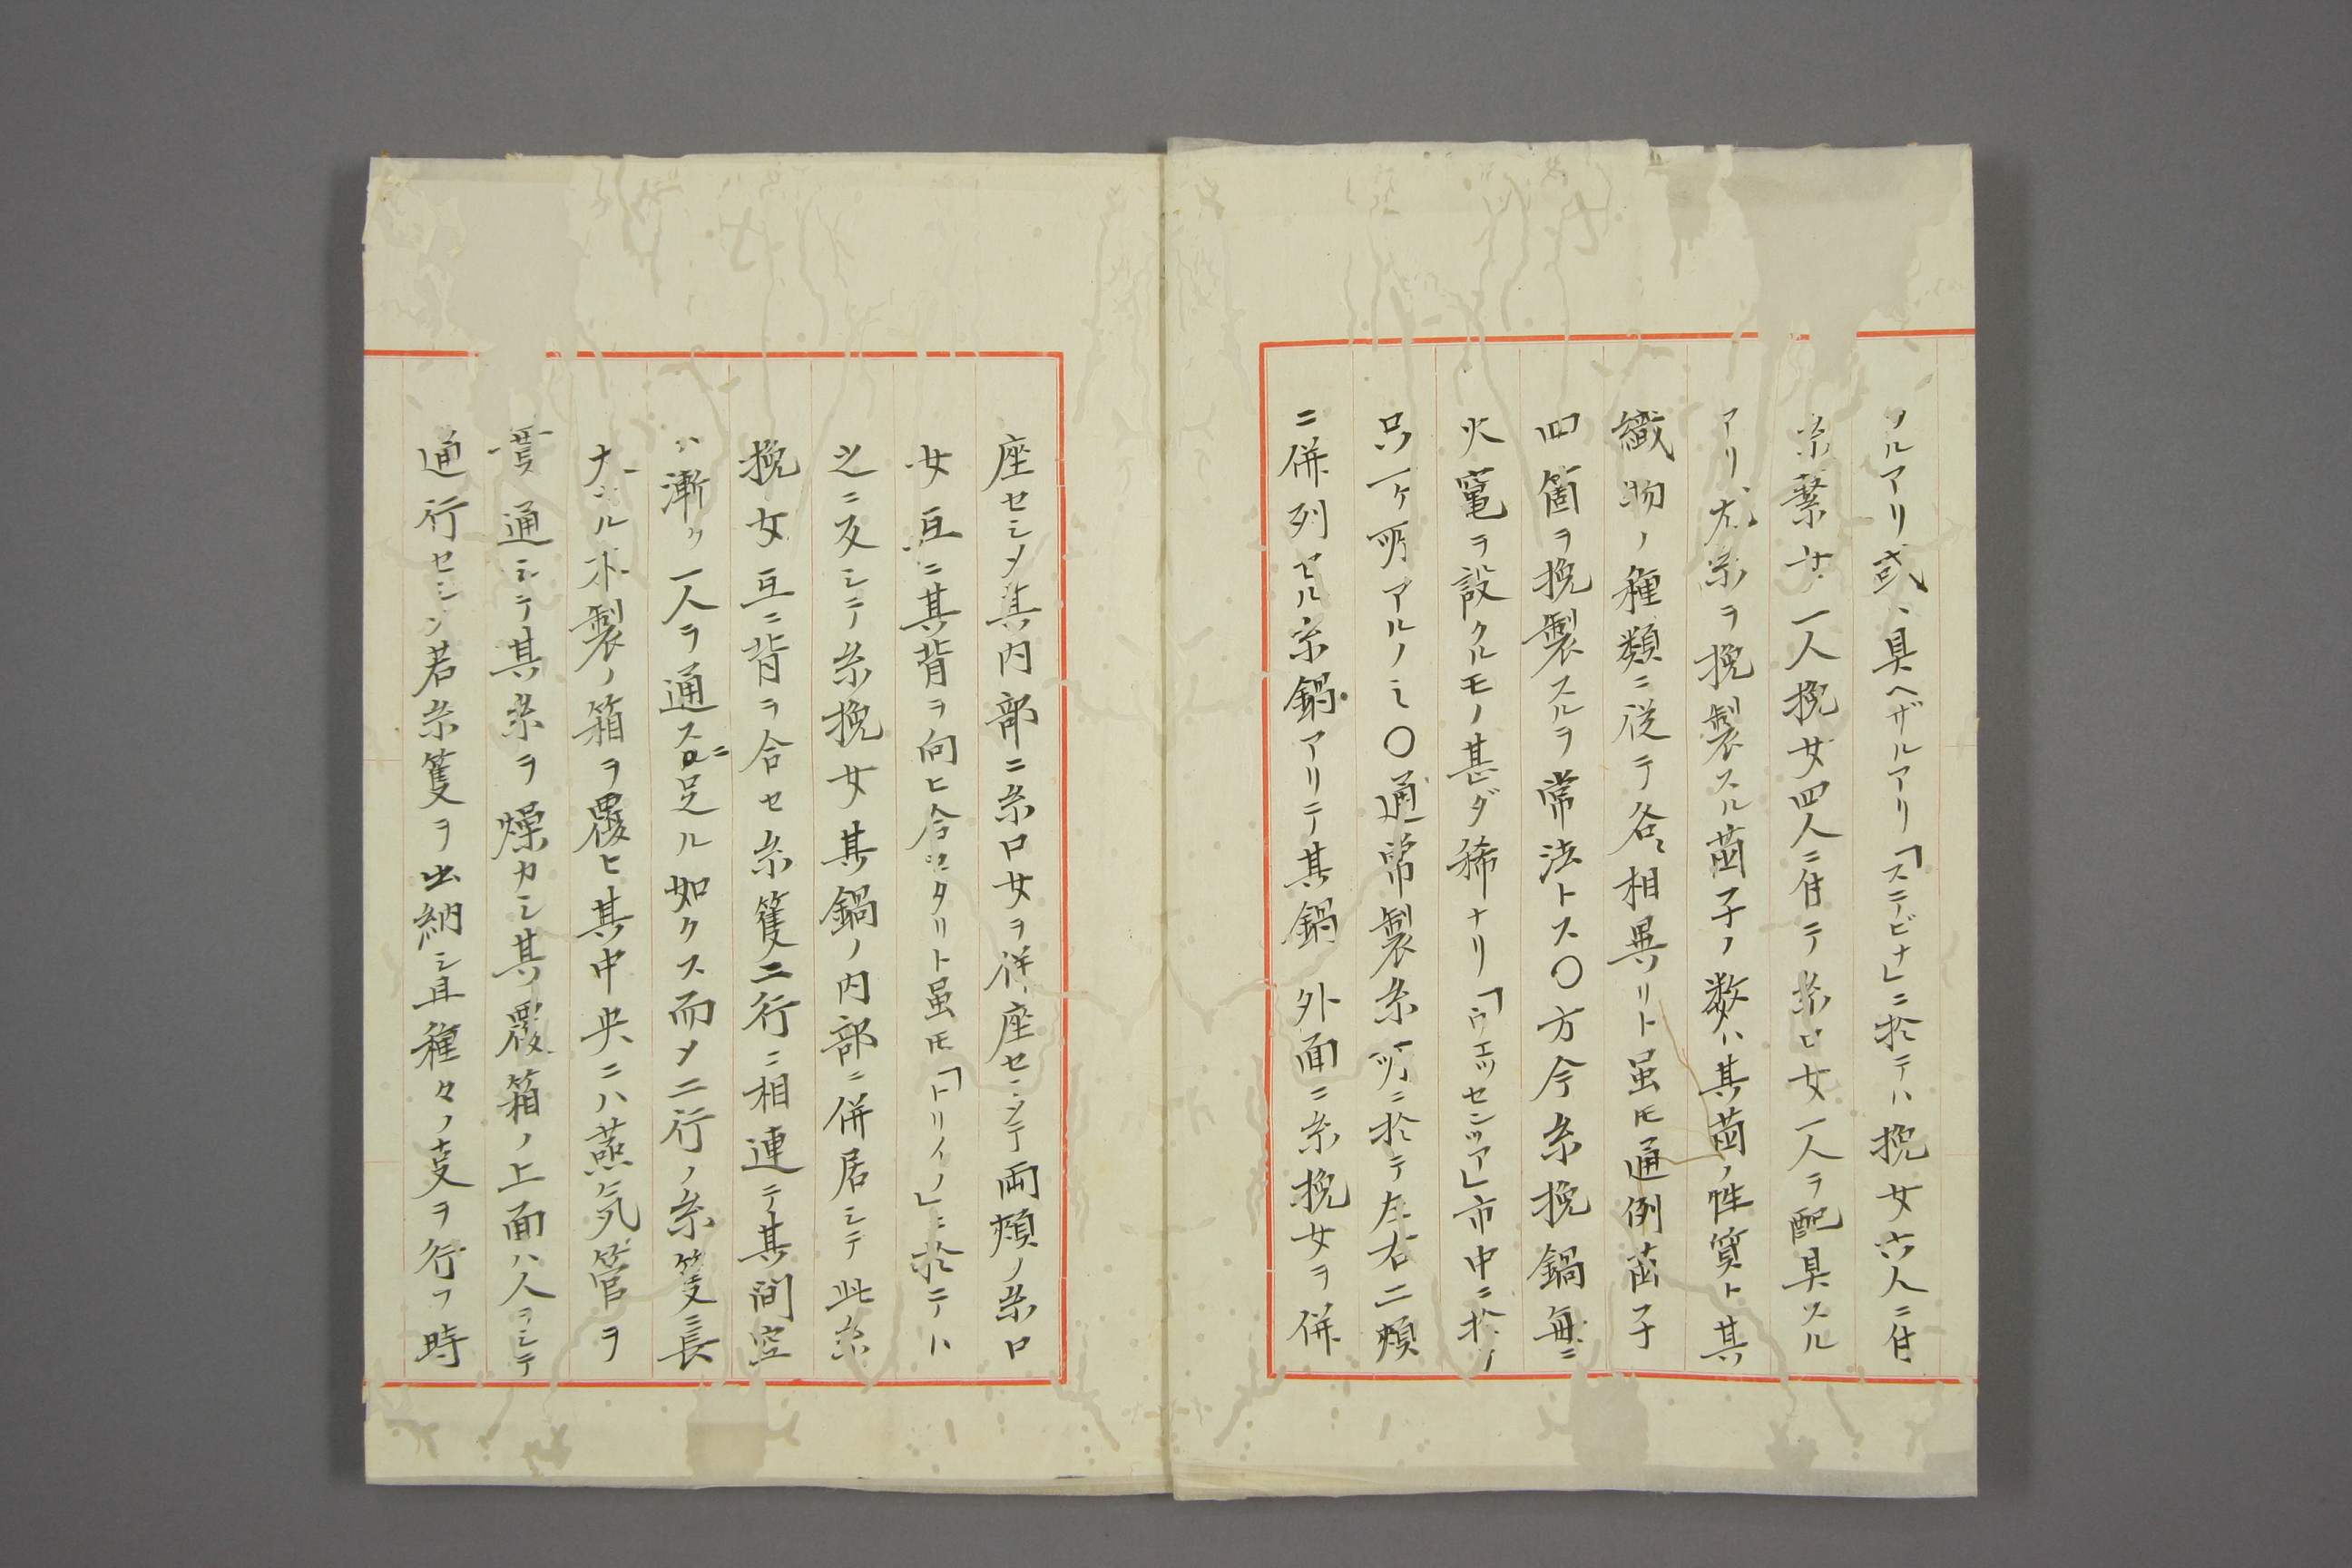 ソルアリ或ハ具ヘザルアリ「スニアビナ」ニ於テハ挽女六人ニ付
糸繋女一人挽女四人ニ付テ糸口女一人ヲ配具スル
アリ尤糸ヲ挽製スル繭子ノ数ハ其繭ノ性質ト其
織物ノ種類ニ従テ各相異リト虽モ通例繭子
四箇ヲ挽製スルヲ常法トス〇方今糸挽鍋毎ニ
火竃ヲ設クルモノ甚ダ稀ナリ「ウエッセンツア」市中ニ於ノ
只一ケ所アルノミ〇通常製糸所ニ於テ左右二頬
ニ併列セル糸鍋アリテ其鍋外面ニ糸挽女ヲ併
座セシメ其内部ニ糸口女ヲ併座セシメテ両頬ノ糸口
女互ニ其背ヲ向ヒ合ハセタリト虽モ「トリイノ」ニ於テハ
之ニ反シテ糸挽女其鍋ノ内部ニ併居シテ此糸
挽女互ニ背ヲ合セ糸篗二行ニ相連テ其間空
ハ漸ク一人ヲ通スニ足ル如クス而メ二行ノ糸篗ニ長
大ナル木製ノ箱ヲ覆ヒ其中央ニハ蒸気管ヲ
貫通シテ其糸ヲ燥カシ其覆箱ノ上面ハ人ヲシテ
通行セシム若糸篗ヲ出納シ且種々ノ支ヲ行フ時